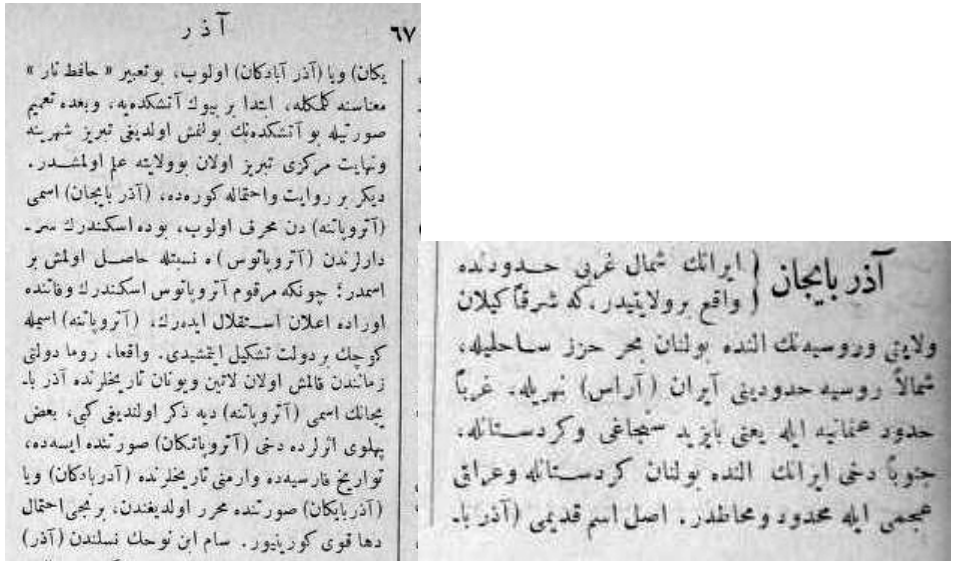 آذربایجان ( ایرانك شمال غربی حدودنده
واقع بر ولایتیدر. که شرقاً کیلان
ولایتی وروسیه‌نك النده بولنان بحر حزز ساحلیله،
شمالاً روسیه حدودینی آیران (آراس) نهریله. غرباً
حدود عثمانیه ایله یعنی بایزید سنجاغی وکردستانله،
جنوباً دخی ایرانك النده بولنان کردستانله وعراق
عجمی ایله محدود ومحاطدر. اصل اسم قدیمی (آذر با-
آذر
٦٧
یکان) ویا (آذر آبادکان) اولوب، بو تعبیر « حافظ نار »
معناسنه کلمکله، ابتدا بر بیوك آتشکده‌یه، وبعده تعمیم
صورتیله بو آتشکده‌نك بولنمش اولدیغی تبریز شهرینه
ونهایت مرکزی تبریز اولان بو ولایته علم اولمشدر.
دیکر بر روایت واحتماله کوره‌ده، (آذر بایجان) اسمی
(آتروپاتنه) دن محرف اولوب، بوده اسکندرك سر-
دارلرندن (آتروپاتوس) ه نسبتله حاصل اولمش بر
اسمدر؛ چونکه مرقوم آتروپاتوس اسکندرك وفاتنده
اوراده اعلان استقلال ایده‌رك، (آتروپاتنه) اسمیله
کوچك بر دولت تشکیل ایتمشیدی. واقعا، روما دولتی
زمانندن قالمش اولان لاتین ویونان تاریخلرنده آذر با-
یجانك اسمی (آتروپاتنه) دیه ذکر اولندیغی کبی، بعض
پهلوی اثرلرده دخی (آتروپاتکان) صورتنده ایسه‌ده،
تواریخ فارسیه‌ده وارمنی تاریخلرنده (آدربادکان) ویا
(آذربایکان) صورتنده محرر اولدیغندن، برنجی احتمال
دها قوی کورینیور. سام ابن نوحك نسلندن (آذر)